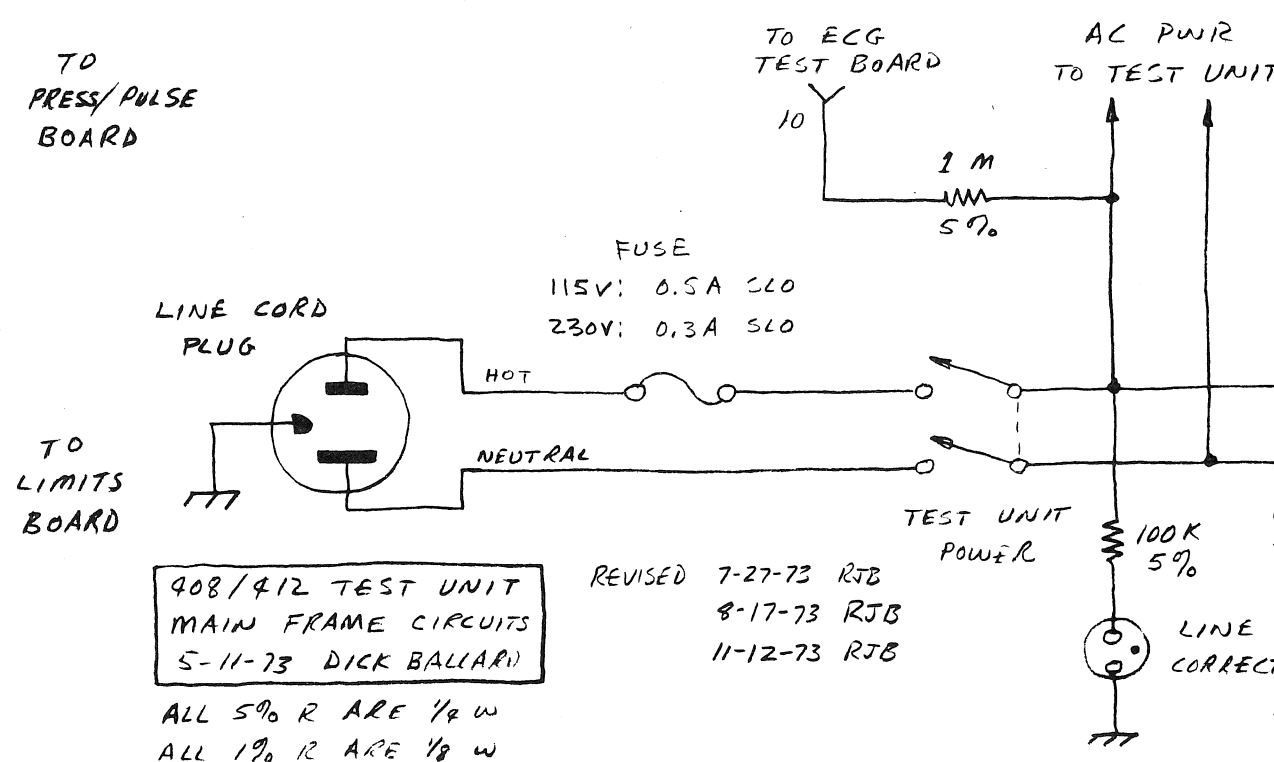 TO
PRESS/PULSE
BOARD
TO ECG
TEST BOARD
10
AC PWR
TO TEST UNIT
1 M
5%
FUSE
115V: 0.5A SLO
230V: 0.3A SLO
LINE CORD
PLUG
HOT
NEUTRAL
TO
LIMITS
BOARD
TEST UNIT
POWER
100K
5%
408/412 TEST UNIT
MAIN FRAME CIRCUITS
5-11-73 DICK BALLARD
REVISED 7-27-73 RJB
8-17-73 RJB
11-12-73 RJB
LINE
CORRECT
ALL 5% R ARE 1/4 W
ALL 1% R ARE 1/8 W